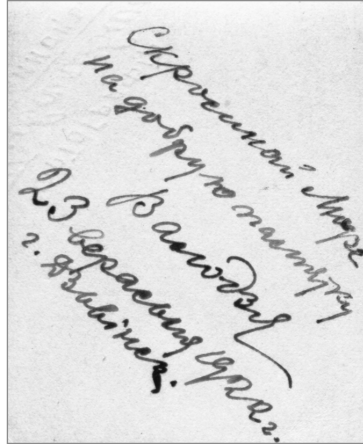 Скромнай Мары
на добрую памятку
Валодзя
23 верасьня 192 г.
г. Дзьвінск.